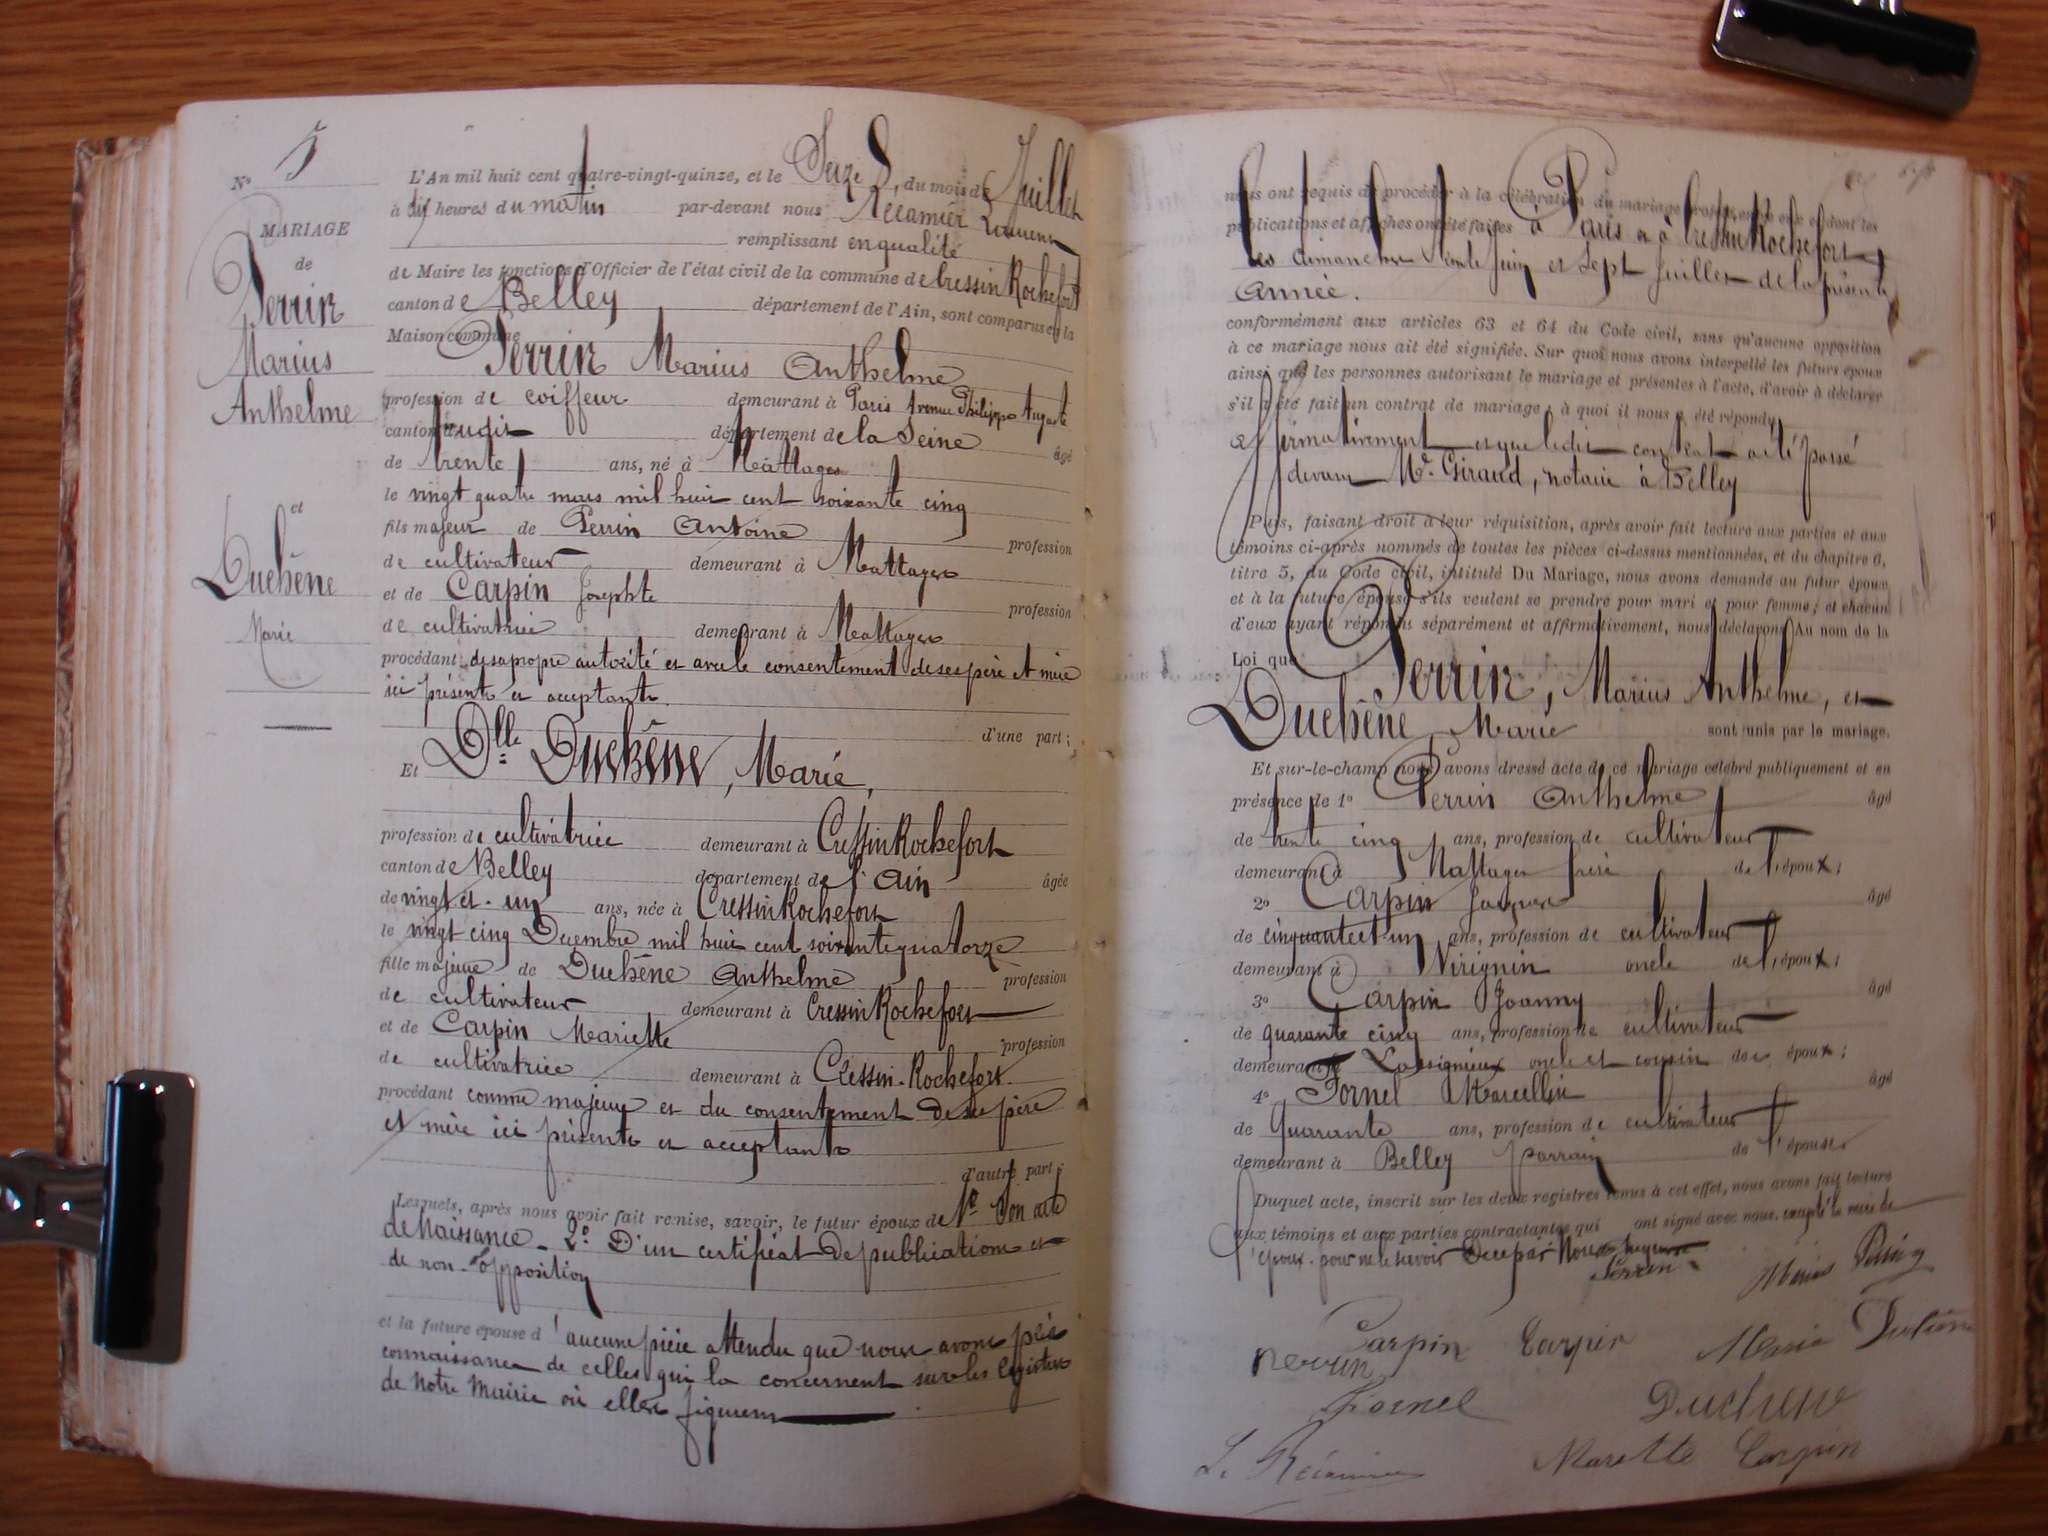 N° 5
MARIAGE
de
Perrin
Marius
Anthelme
et
Duchêne
Marie
L'An mil huit cent quatre-vingt-quinze, et le Seize, du mois de Juillet
à dix heures du matin par-devant nous Récamier Laurent
remplissant en qualité
de Maire les fonctions d'Officier de l'état civil de la commune de Cressin Rochefort
canton de Belley département de l'Ain, sont comparus en la
Maison commune Perrin Marius Anthelme
profession de coiffeur demeurant à Paris Avenue Philippe Auguste
canton dudit département de la Seine âgé
de trente ans, né à Nattages
le vingt quatre mars mil huit cent soixante cinq
fils majeur de Perrin Antoine profession
de cultivateur demeurant à Nattages
et de Carpin Josephte profession
de cultivatrice demeurant à Nattages
procédant de sa propre autorité et avec le consentement de ses père et mère
ici présents et acceptants.
d'une part;
Et Dlle Duchêne, Marie,
profession de cultivatrice demeurant à Cressin Rochefort
canton de Belley département de l'Ain âgée
de vingt et un ans, née à Cressin Rochefort
le vingt cinq Décembre mil huit cent soixante quatorze
fille majeure de Duchêne Anthelme profession
de cultivateur demeurant à Cressin Rochefort
et de Carpin Mariette profession
de cultivatrice demeurant à Cressin-Rochefort
procédant comme majeure et du consentement de ses père
et mère ici présents et acceptants
d'autre part;
Lesquels, après nous avoir fait remise, savoir, le futur époux de 1° Son acte
de Naissance - 2° D'un certificat de publications et
de non-opposition
et la future épouse d'aucune pièce attendu que nous avons pris
connaissance de celles qui la concernent sur les registres
de notre Mairie où elles figurent
nous ont requis de procéder à la célébration du mariage projeté entre eux et dont les
publications et affiches ont été faites à Paris et à Cressin Rochefort
les dimanches trente Juin et Sept Juillet de la présente
année.
conformément aux articles 63 et 64 du Code civil, sans qu'aucune opposition
à ce mariage nous ait été signifiée. Sur quoi nous avons interpellé les futurs époux
ainsi que les personnes autorisant le mariage et présentes à l'acte, d'avoir à déclarer
s'il a été fait un contrat de mariage, à quoi il nous a été répondu
affirmativement et que ledit contrat a été passé
devant Me Giraud, notaire à Belley
Puis, faisant droit à leur réquisition, après avoir fait lecture aux parties et aux
témoins ci-après nommés de toutes les pièces ci-dessus mentionnées, et du chapitre 6,
titre 5, du Code civil, intitulé Du Mariage, nous avons demandé au futur époux
et à la future épouse s'ils veulent se prendre pour mari et pour femme; et chacun
d'eux ayant répondu séparément et affirmativement, nous déclarons Au nom de la
Loi que Perrin, Marius Anthelme, et
Duchêne, Marie sont unis par le mariage.
Et sur-le-champ nous avons dressé acte de ce mariage célébré publiquement et en
présence de 1° Perrin Anthelme âgé
de trente cinq ans, profession de cultivateur
demeurant à Nattages frère de l'époux;
2° Carpin âgé
de cinquante et un ans, profession de cultivateur
demeurant à Virignin oncle de l'époux;
3° Carpin Joanny âgé
de quarante cinq ans, profession de cultivateur
demeurant à Lassignieux oncle et cousin des époux;
4° Fornel Marcellin âgé
de Quarante ans, profession de cultivateur
demeurant à Belley parrain de l'épouse
Duquel acte, inscrit sur les deux registres tenus à cet effet, nous avons fait lecture
aux témoins et aux parties contractantes qui ont signé avec nous excepté la mère de
l'époux pour ne le savoir De ce par Nous
Perrin
Marius Perrin
Carpin Carpin Marie Duchêne
Perrin
Fornel Duchene
L. Récamier Mariette Carpin